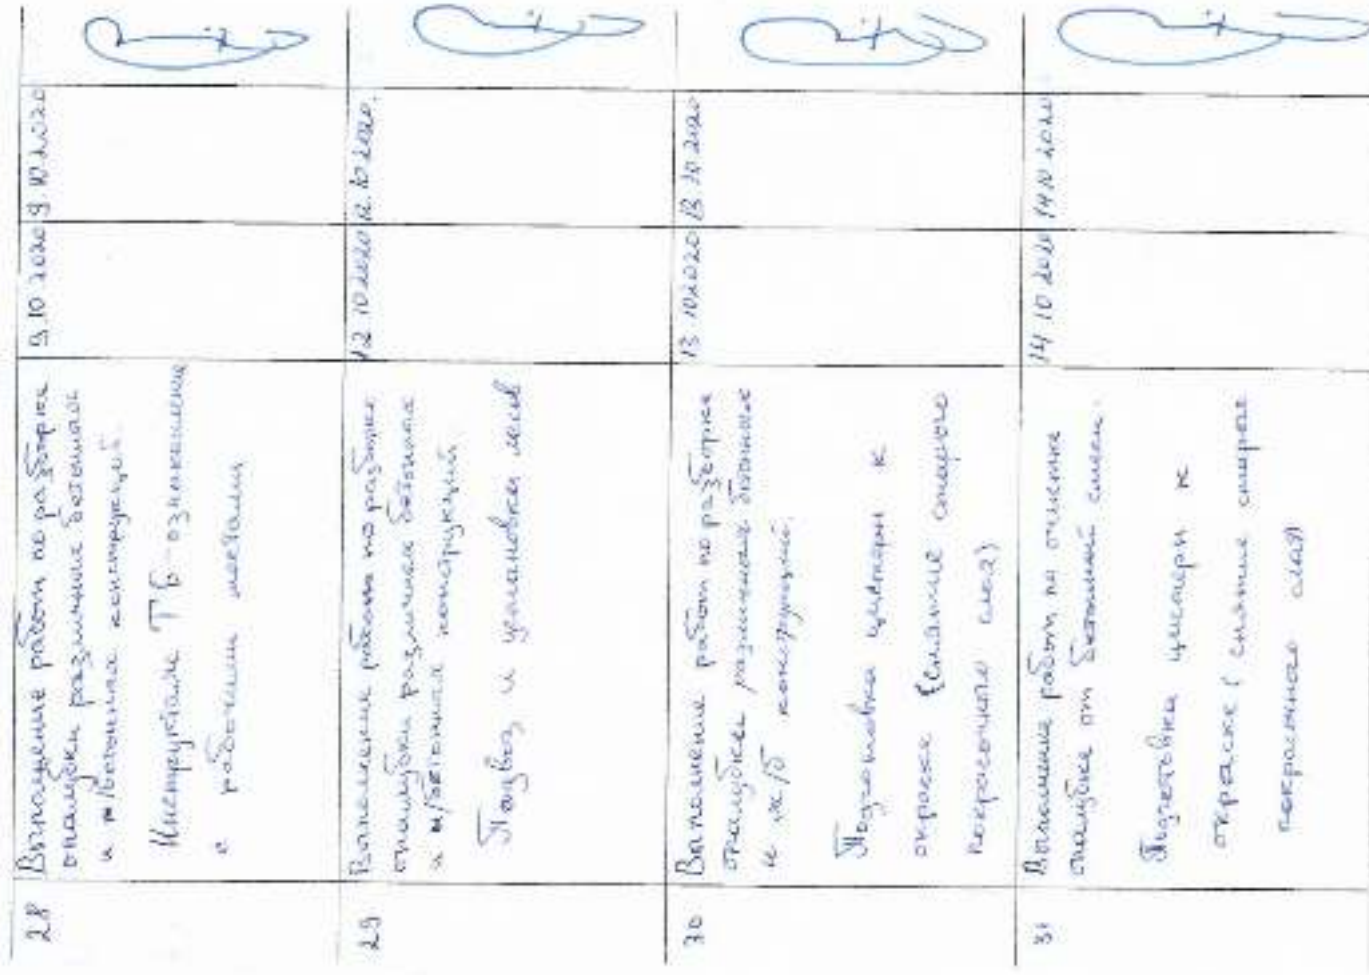 28
Выполнение работ по разборке
опалубки различных бетонных
и ж/бетонных конструкций.
Инструктаж ТБ ознакомление
с рабочими местами
9.10 2020
9.10.2020
29
Выполнение работ по разборке
опалубки различных бетонных
и ж/бетонных конструкций
Подвоз и установка лесов
12 10 2020
12.10 2020.
30
Выполнение работ по разборке
опалубки различных бетонных
и ж/б конструкций.
Подготовка цистерн к
окраске (снятие старого
покрасочного слоя)
13 10 2020
13 10 2020
31
Выполнение работ по очистке
опалубки от бетонной смеси.
Подготовка цистерн к
окраске (снятие старого
покрасочного слоя)
14 10 2020
14 10 2020